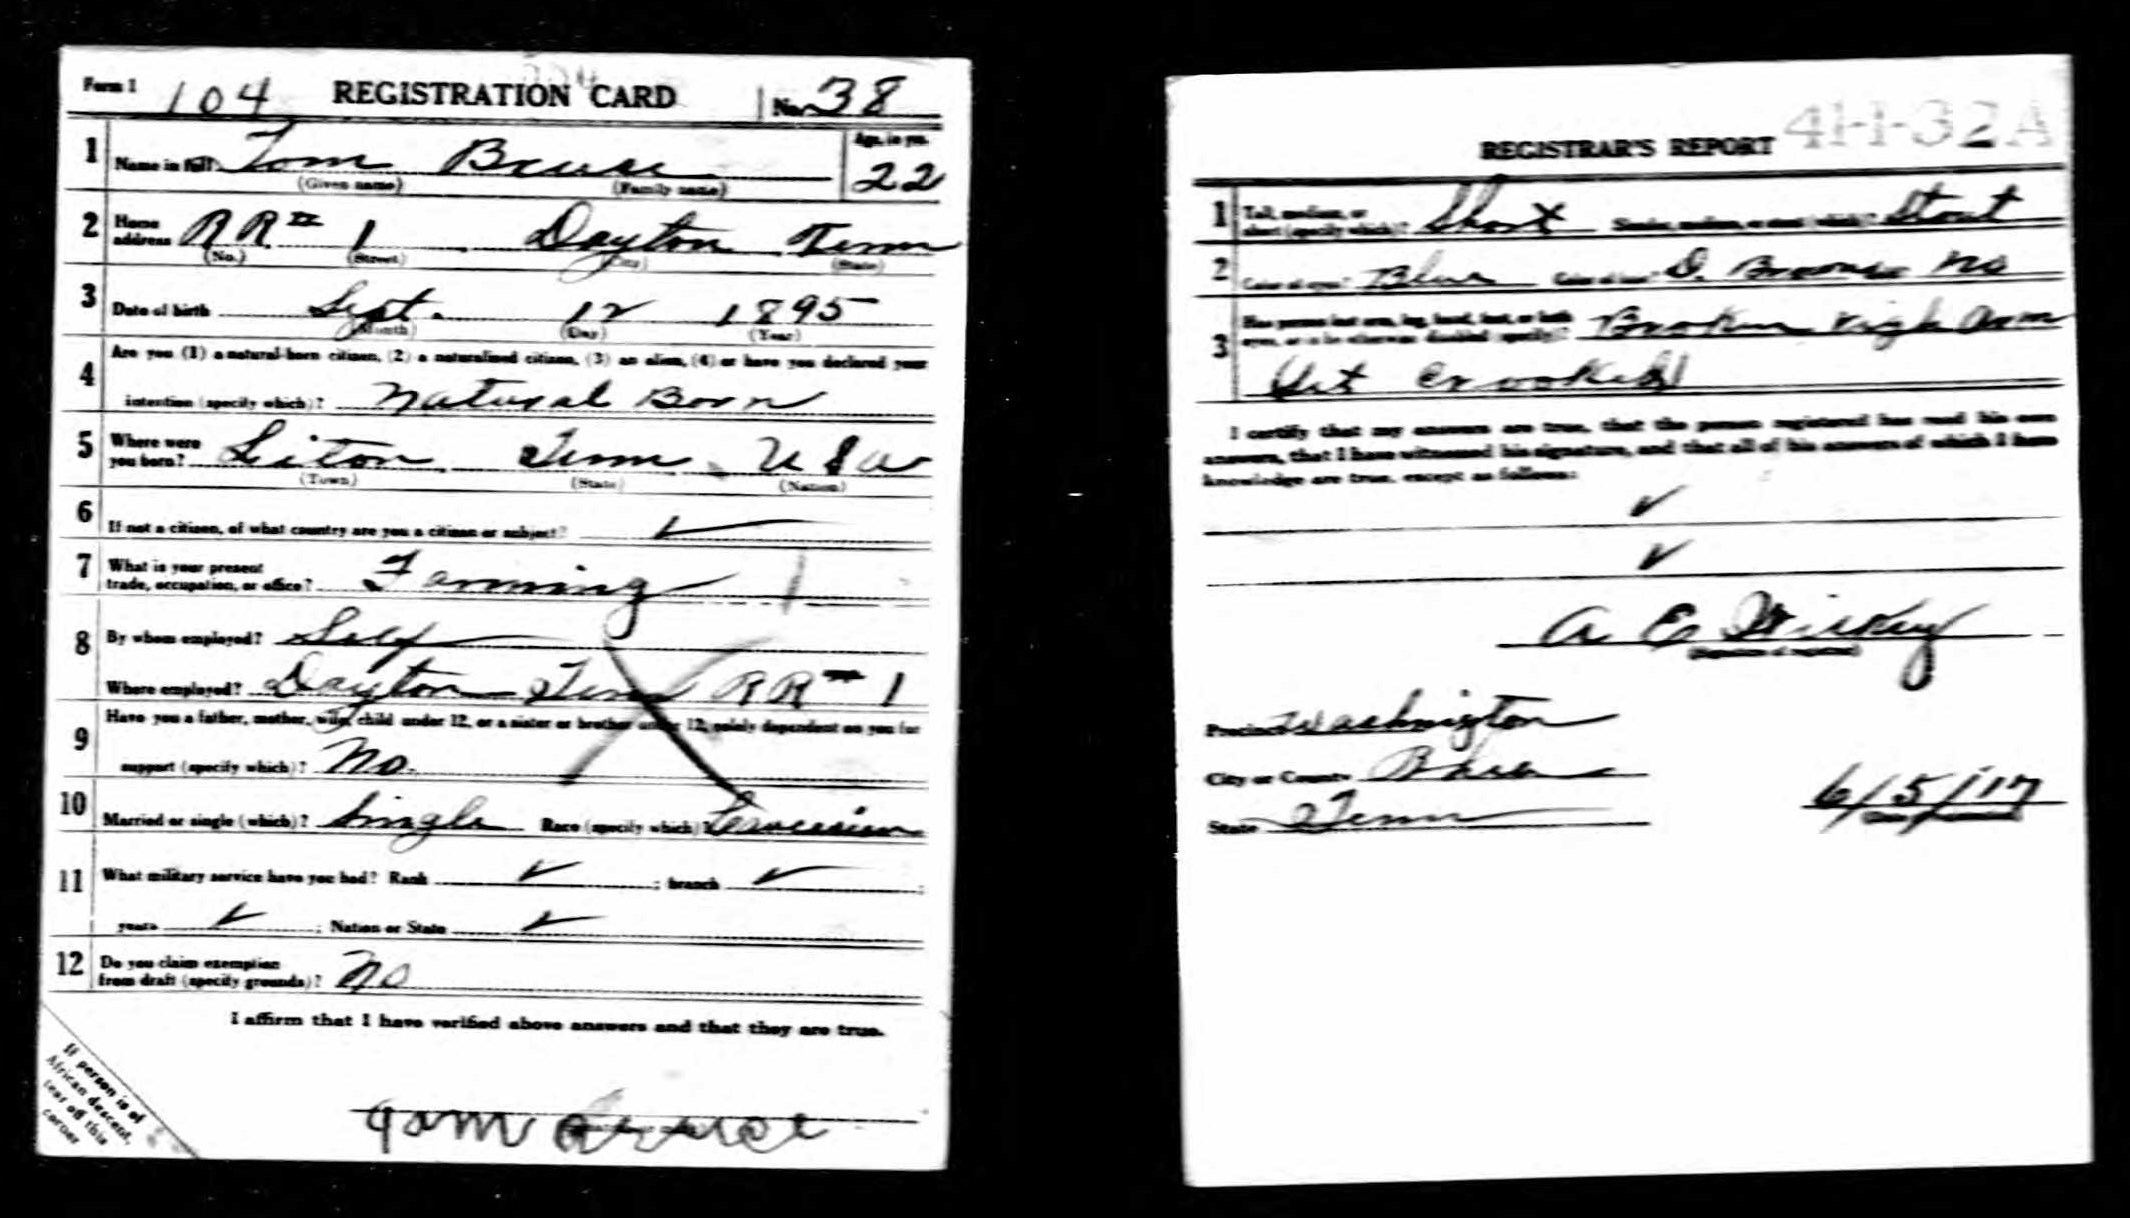 Form 1 104 REGISTRATION CARD No. 38
1 Name in full Tom Bruce Age, in yrs. 22
(Given name) (Family name)
2 Home address RR # 1 Dayton Tenn
(No.) (Street) (City) (State)
3 Date of birth Sept. 12 1895
(Month) (Day) (Year)
4 Are you (1) a natural-born citizen, (2) a naturalized citizen, (3) an alien, (4) or have you declared your
intention (specify which)? Natural Born
5 Where were you born? Liton Tenn. USA
(Town) (State) (Nation)
6 If not a citizen, of what country are you a citizen or subject? ✓
7 What is your present trade, occupation, or office? Farming
8 By whom employed? Self
Where employed? Dayton Tenn RR # 1
9 Have you a father, mother, wife, child under 12, or a sister or brother under 12, solely dependent on you for
support (specify which)? No.
10 Married or single (which)? Single Race (specify which)?
11 What military service have you had? Rank ✓ ; branch ✓ ;
years ✓ ; Nation or State ✓
12 Do you claim exemption from draft (specify grounds)? No
I affirm that I have verified above answers and that they are true.
Tom Bruce
If person is of
African descent,
tear off this
corner
REGISTRAR'S REPORT 41-1-32A
1 Tall, medium, or short (specify which)? Short Slender, medium, or stout (which)? Stout
2 Color of eyes? Blue Color of hair? D. Brown No
3 Has person lost arm, leg, hand, foot, or both eyes, or is he otherwise disabled (specify)? Broken Righ Arm
Set Crooked
I certify that my answers are true, that the person registered has read his own
answers, that I have witnessed his signature, and that all of his answers of which I have
knowledge are true, except as follows:
✓
✓
A E
(Signature of registrar)
Precinct Washington
City or County Rhea
State Tenn 6/5/17